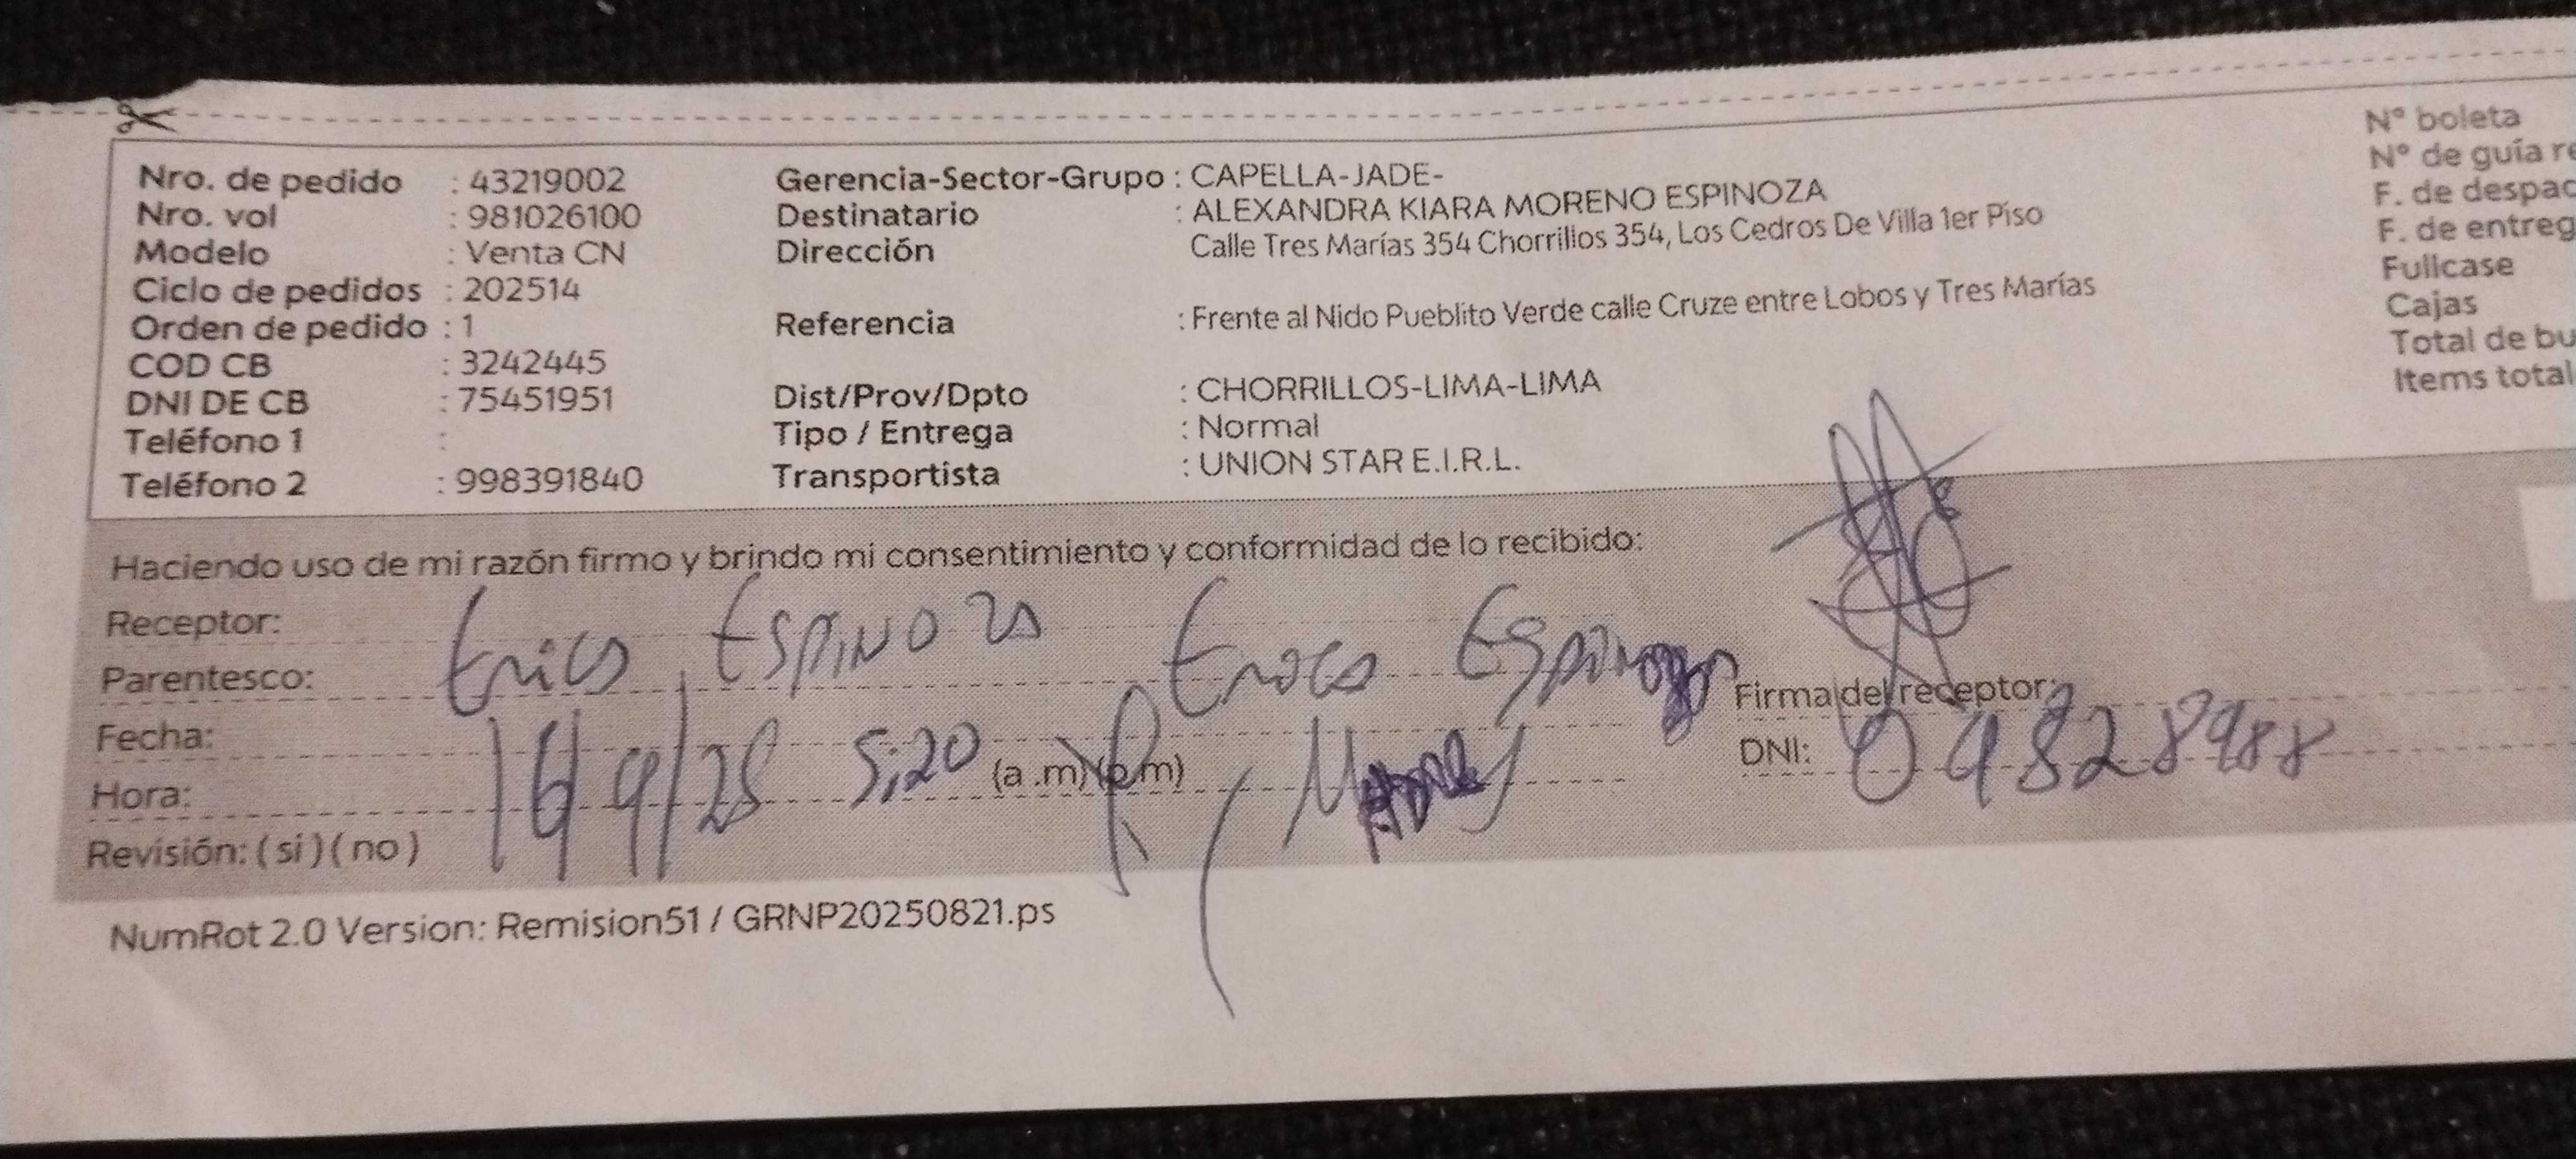 Nro. de pedido : 43219002
Nro. vol : 981026100
Modelo : Venta CN
Ciclo de pedidos : 202514
Orden de pedido : 1
COD CB : 3242445
DNI DE CB : 75451951
Teléfono 1 :
Teléfono 2 : 998391840
Gerencia-Sector-Grupo : CAPELLA-JADE-
Destinatario : ALEXANDRA KIARA MORENO ESPINOZA
Dirección Calle Tres Marías 354 Chorrillos 354, Los Cedros De Villa 1er Piso
Referencia : Frente al Nido Pueblito Verde calle Cruze entre Lobos y Tres Marías
Dist/Prov/Dpto : CHORRILLOS-LIMA-LIMA
Tipo / Entrega : Normal
Transportista : UNION STAR E.I.R.L.
N° boleta
N° de guía re
F. de despac
F. de entreg
Fullcase
Cajas
Total de bu
Items total
Haciendo uso de mi razón firmo y brindo mi consentimiento y conformidad de lo recibido:
Receptor: Espinoza Espinoza
Parentesco:
Fecha: 16/9/25 5:20
Hora: (a .m) (p.m)
Revisión: ( si ) ( no )
Firma del receptor:
DNI: 09828988
NumRot 2.0 Version: Remision51 / GRNP20250821.ps